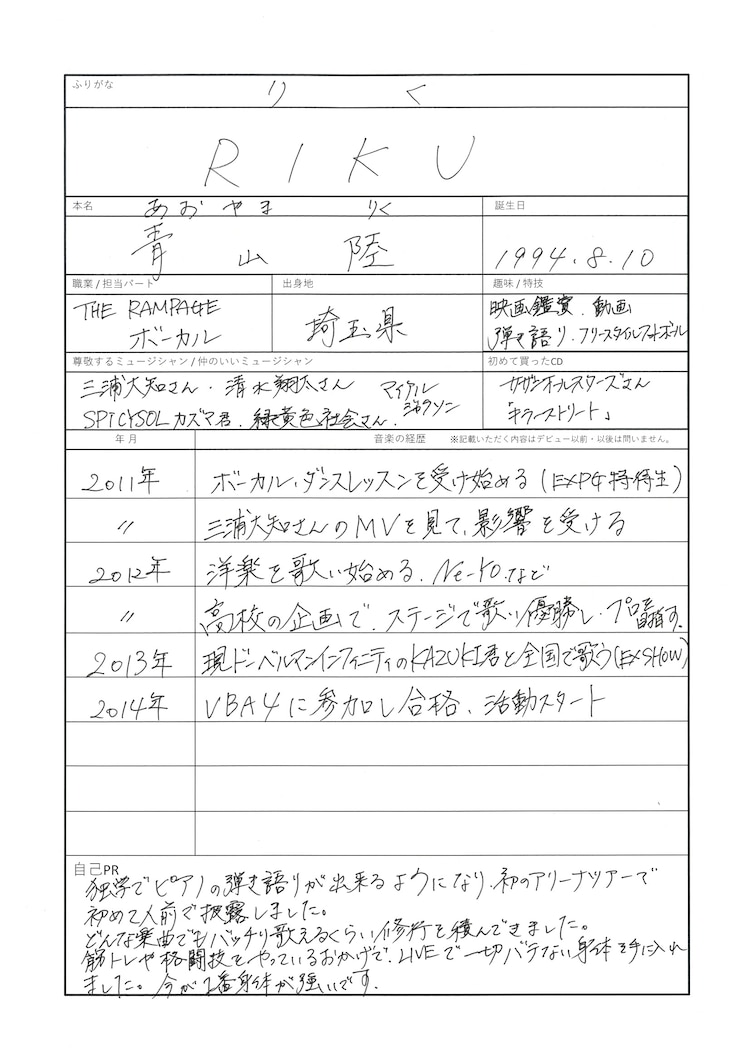 ふりがな
りく
RIKU
本名
あおやま りく
誕生日
青山 陸
1994.8.10
職業 / 担当パート
出身地
趣味 / 特技
THE RAMPAGE
ボーカル
埼玉県
映画鑑賞、動画
弾き語り・フリースタイルフットボール
尊敬するミュージシャン / 仲のいいミュージシャン
初めて買ったCD
三浦大知さん・清水翔太さん マイケルジャクソン
SPICYSOL カズマ君、緑黄色社会さん、
サザンオールスターズさん
「キラーストリート」
年月
音楽の経歴 ※記載いただく内容はデビュー以前・以後は問いません。
2011年 ボーカル、ダンスレッスンを受け始める(EXPG特待生)
〃 三浦大知さんのMVを見て、影響を受ける
2012年 洋楽を歌い始める、Ne-Yo.など
〃 高校の企画で、ステージで歌い優勝し、プロを目指す。
2013年 現ドーベルマンインフィニティのKAZUKI君と全国で歌う(EXSHOW)
2014年 VBA4に参加し合格、活動スタート
自己PR
独学でピアノの弾き語りが出来るようになり、初のアリーナツアーで
初めて人前で披露しました。
どんな楽曲でもバッチリ歌えるくらい修行を積んできました。
筋トレや格闘技をやっているおかげで、LIVEで一切バテない身体を手に入れ
ました。今が1番身体が強いです。